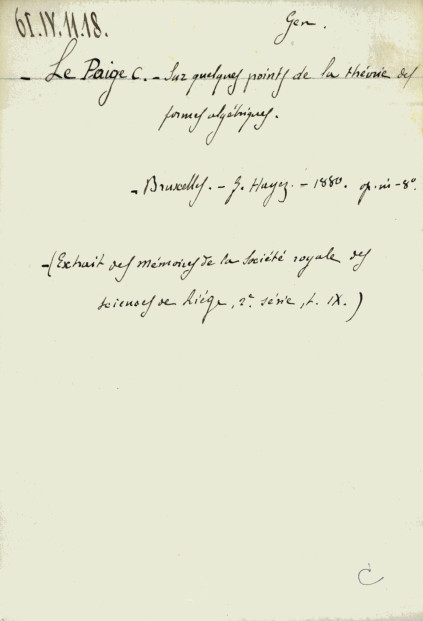 61.IV.11.18.
Gen.
- Le Paige C. - Sur quelques points de la théorie des
formes algébriques.
- Bruxelles. - G. Hayez. - 1880. op. in-8°.
- (Extrait des mémoires de la société royale des
sciences de Liége, 2e. série, t. IX.)
C